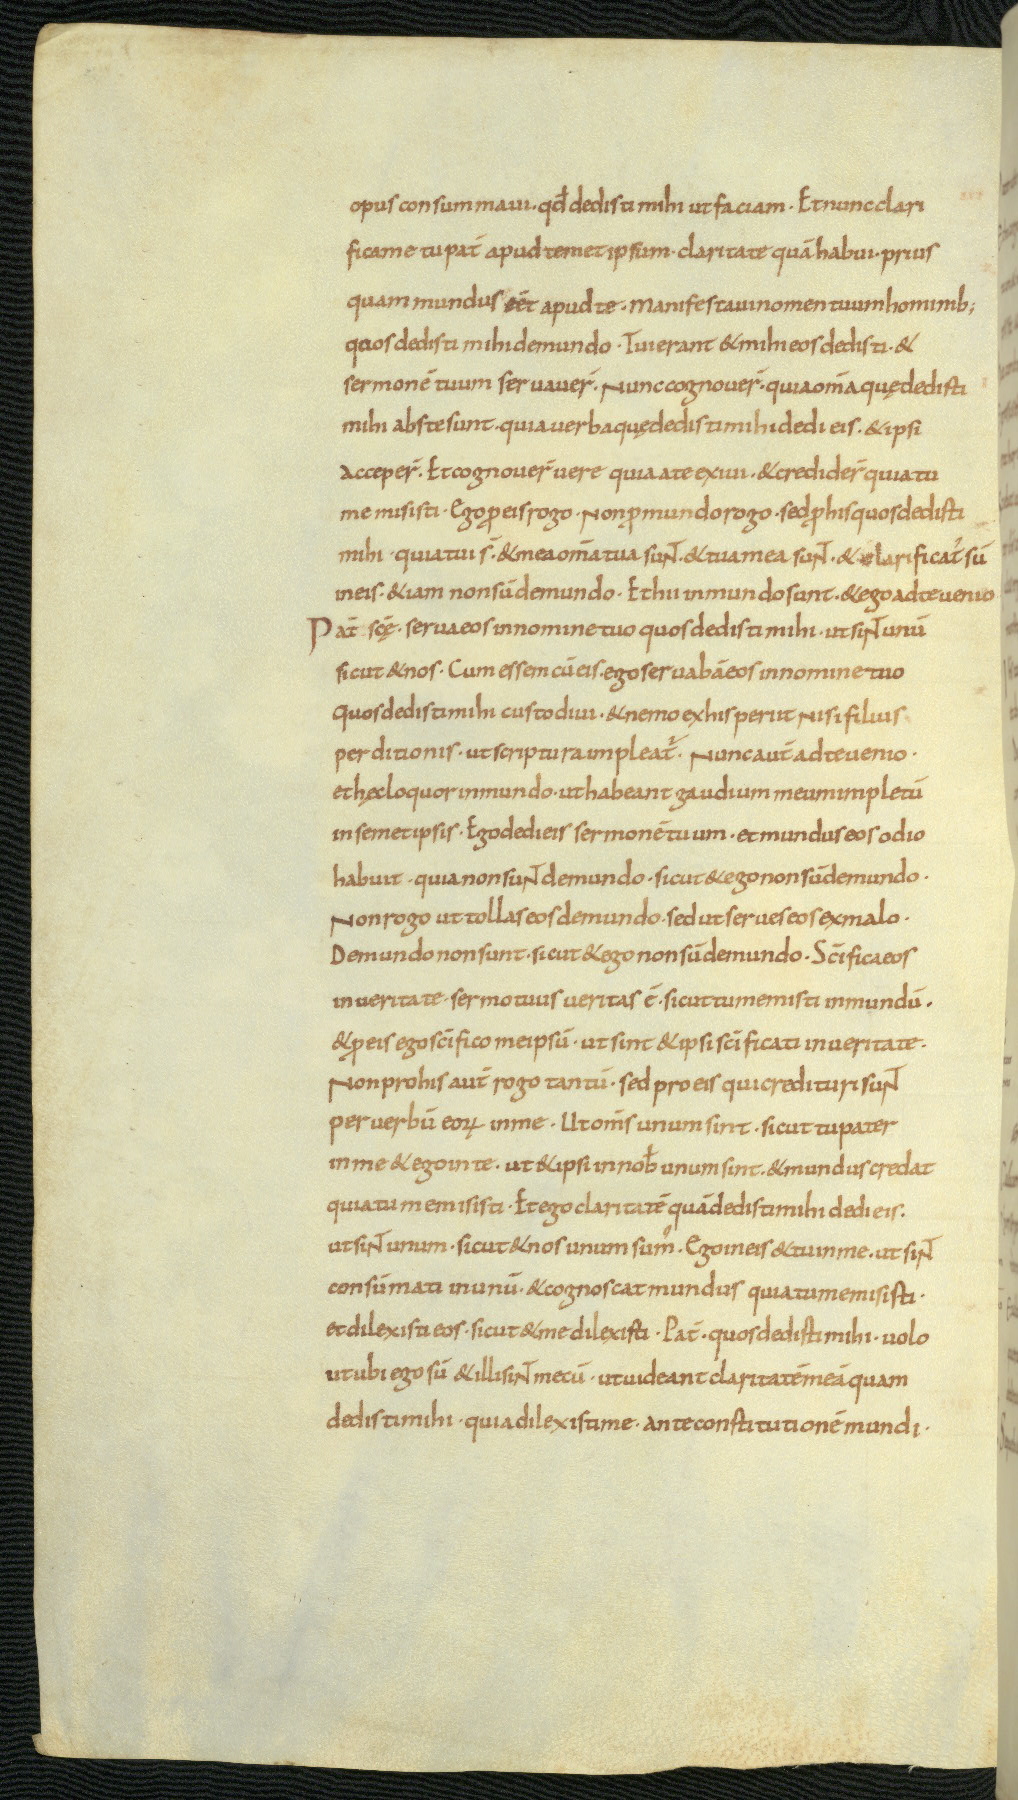 opus consummaui · qđ dedisti mihi ut faciam · Et nunc clari
fica me tu pat̄ apud temetipsum · claritate quā habui · prius
quam mundus eēt apud te · Manifestaui nomen tuum hominib;
quos dedisti mihi de mundo · Tui erant & mihi eos dedisti · &
sermonē tuum seruauer̄ · Nunc cognouer̄ · quia om̄a quę dedisti
mihi abs te sunt · quia uerba quę dedisti mihi dedi eis · & ipsi
acceper̄ · Et cognouer̄ uere quia a te exiui · & credider̄ quia tu
me misisti · Ego ꝓ eis rogo · Non ꝓ mundo rogo · sed ꝓ his quos dedisti
mihi · quia tui s̄ · & mea om̄a tua suɴ̄t · & tua mea suɴ̄t · & clarificat᷒ sū
in eis · & iam non sū de mundo · Et hii in mundo sunt · & ego ad te uenio
Pat̄ scē · serua eos in nomine tuo quos dedisti mihi · ut siɴt unū
sicut & nos · Cum essem cū eis · ego seruabā eos in nomine tuo
Quos dedisti mihi custodiui · & nemo ex his periit Nisi filius
perditionis · ut scriptura impleat᷒ · Nunc aut̄ ad te uenio ·
et hęc loquor in mundo · ut habeant gaudium meum impletū
in semetipsis · Ego dedi eis sermonē tuum · et mundus eos odio
habuit · quia non suɴt de mundo · sicut & ego non sū de mundo ·
Non rogo ut tollas eos de mundo · sed ut serues eos ex malo ·
De mundo non sunt · sicut & ego non sū de mundo · Sc̄ifica eos
in ueritate · sermo tuus ueritas ē · sicut tu me misti in mundū ·
& ꝓ eis ego sc̄ifico meipsū · ut sint & ipsi sc̄ificati in ueritate ·
Non pro his aut̄ rogo tantū · sed pro eis qui credituri suɴt
per uerbū eoꝝ in me · Ut om̄s unum sint · sicut tu pater
in me & ego in te · ut & ipsi in nob̄ unum sint · & mundus credat
quia tu me misisti · Et ego claritatē quā dedisti mihi dedi eis ·
ut siɴt unum · sicut & nos unum sumꝰ · Ego in eis & tu in me · ut siɴt
consūmati in unū · & cognoscat mundus quia tu me misisti ·
et dilexisti eos · sicut & me dilexisti · Pat̄ · quos dedisti mihi · uolo
ut ubi ego sū & illi siɴt mecū · ut uideant claritatē meā quam
dedisti mihi · quia dilexisti me · ante constitutionē mundi ·